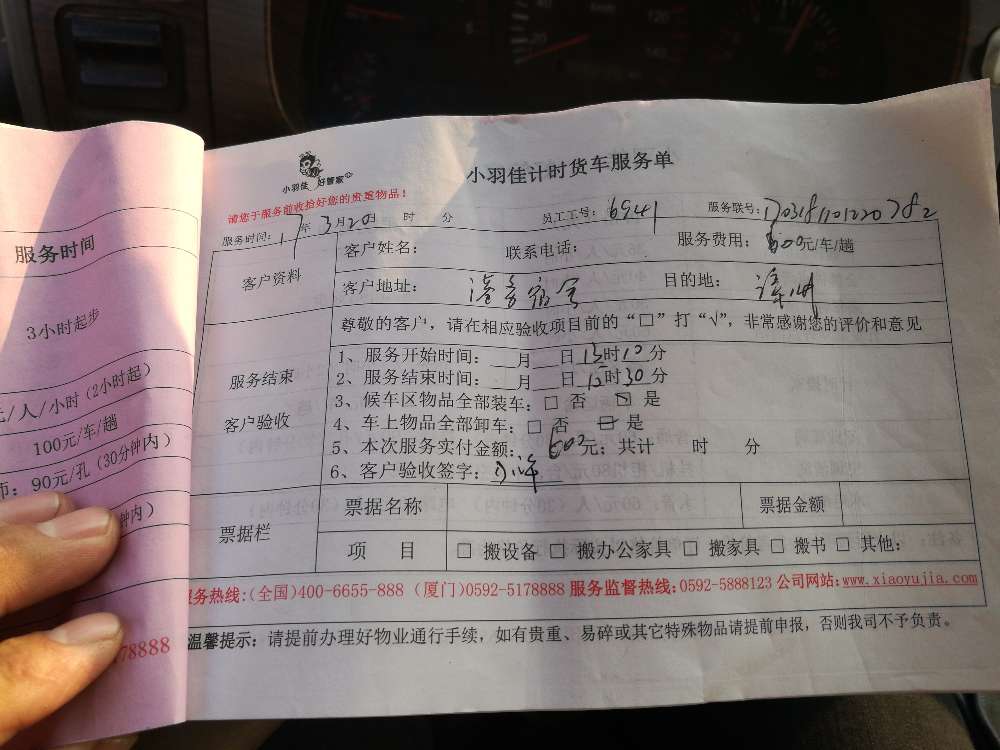 服务时间
3小时起步
元/人/小时(2小时起)
100元/车/趟
币: 90元/孔(30分钟内)
钟内)
78888
小羽佳 好管家
小羽佳计时货车服务单
请您于服务前收拾好您的贵重物品!
服务时间: 17年 3月20日 时 分 员工工号: 6941 服务联号:
客户资料
客户姓名: 联系电话: 服务费用: 600元/车/趟
客户地址: 港务宿舍 目的地: 漳州
尊敬的客户, 请在相应验收项目前的“□”打“√”, 非常感谢您的评价和意见
服务结束
客户验收
1、服务开始时间: 月 日13时10分
2、服务结束时间: 月 日 时30分
3、候车区物品全部装车: □ 否 □ 是
4、车上物品全部卸车: □ 否 □ 是
5、本次服务实付金额: 600元; 共计 时 分
6、客户验收签字:
票据栏
票据名称 票据金额
项 目 □ 搬设备 □ 搬办公家具 □ 搬家具 □ 搬书 □ 其他:
服务热线:(全国)400-6655-888 (厦门)0592-5178888 服务监督热线:0592-5888123 公司网站:www.xiaoyujia.com
温馨提示: 请提前办理好物业通行手续, 如有贵重、易碎或其它特殊物品请提前申报, 否则我司不予负责。